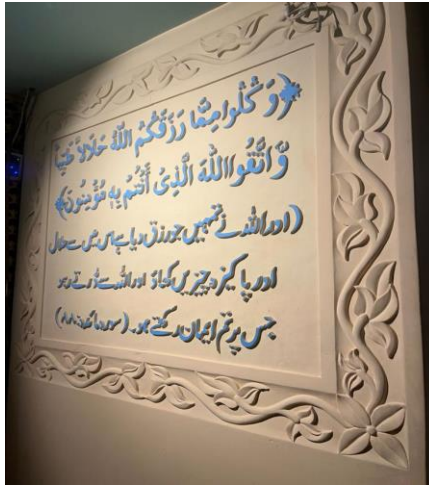 ﴿وَكُلُوا مِمَّا رَزَقَكُمُ اللّٰهُ حَلَالًا طَيِّبًا
وَّاتَّقُوا اللّٰهَ الَّذِىْ أَنْتُمْ بِهٖ مُؤْمِنُوْنَ﴾
(اور اللہ نے تمہیں جو رزق دیا ہے اس میں سے حلال
اور پاکیزہ چیزیں کھاؤ اور اللہ سے ڈرتے رہو
جس پر تم ایمان رکھتے ہو۔ (سورہ مائدہ